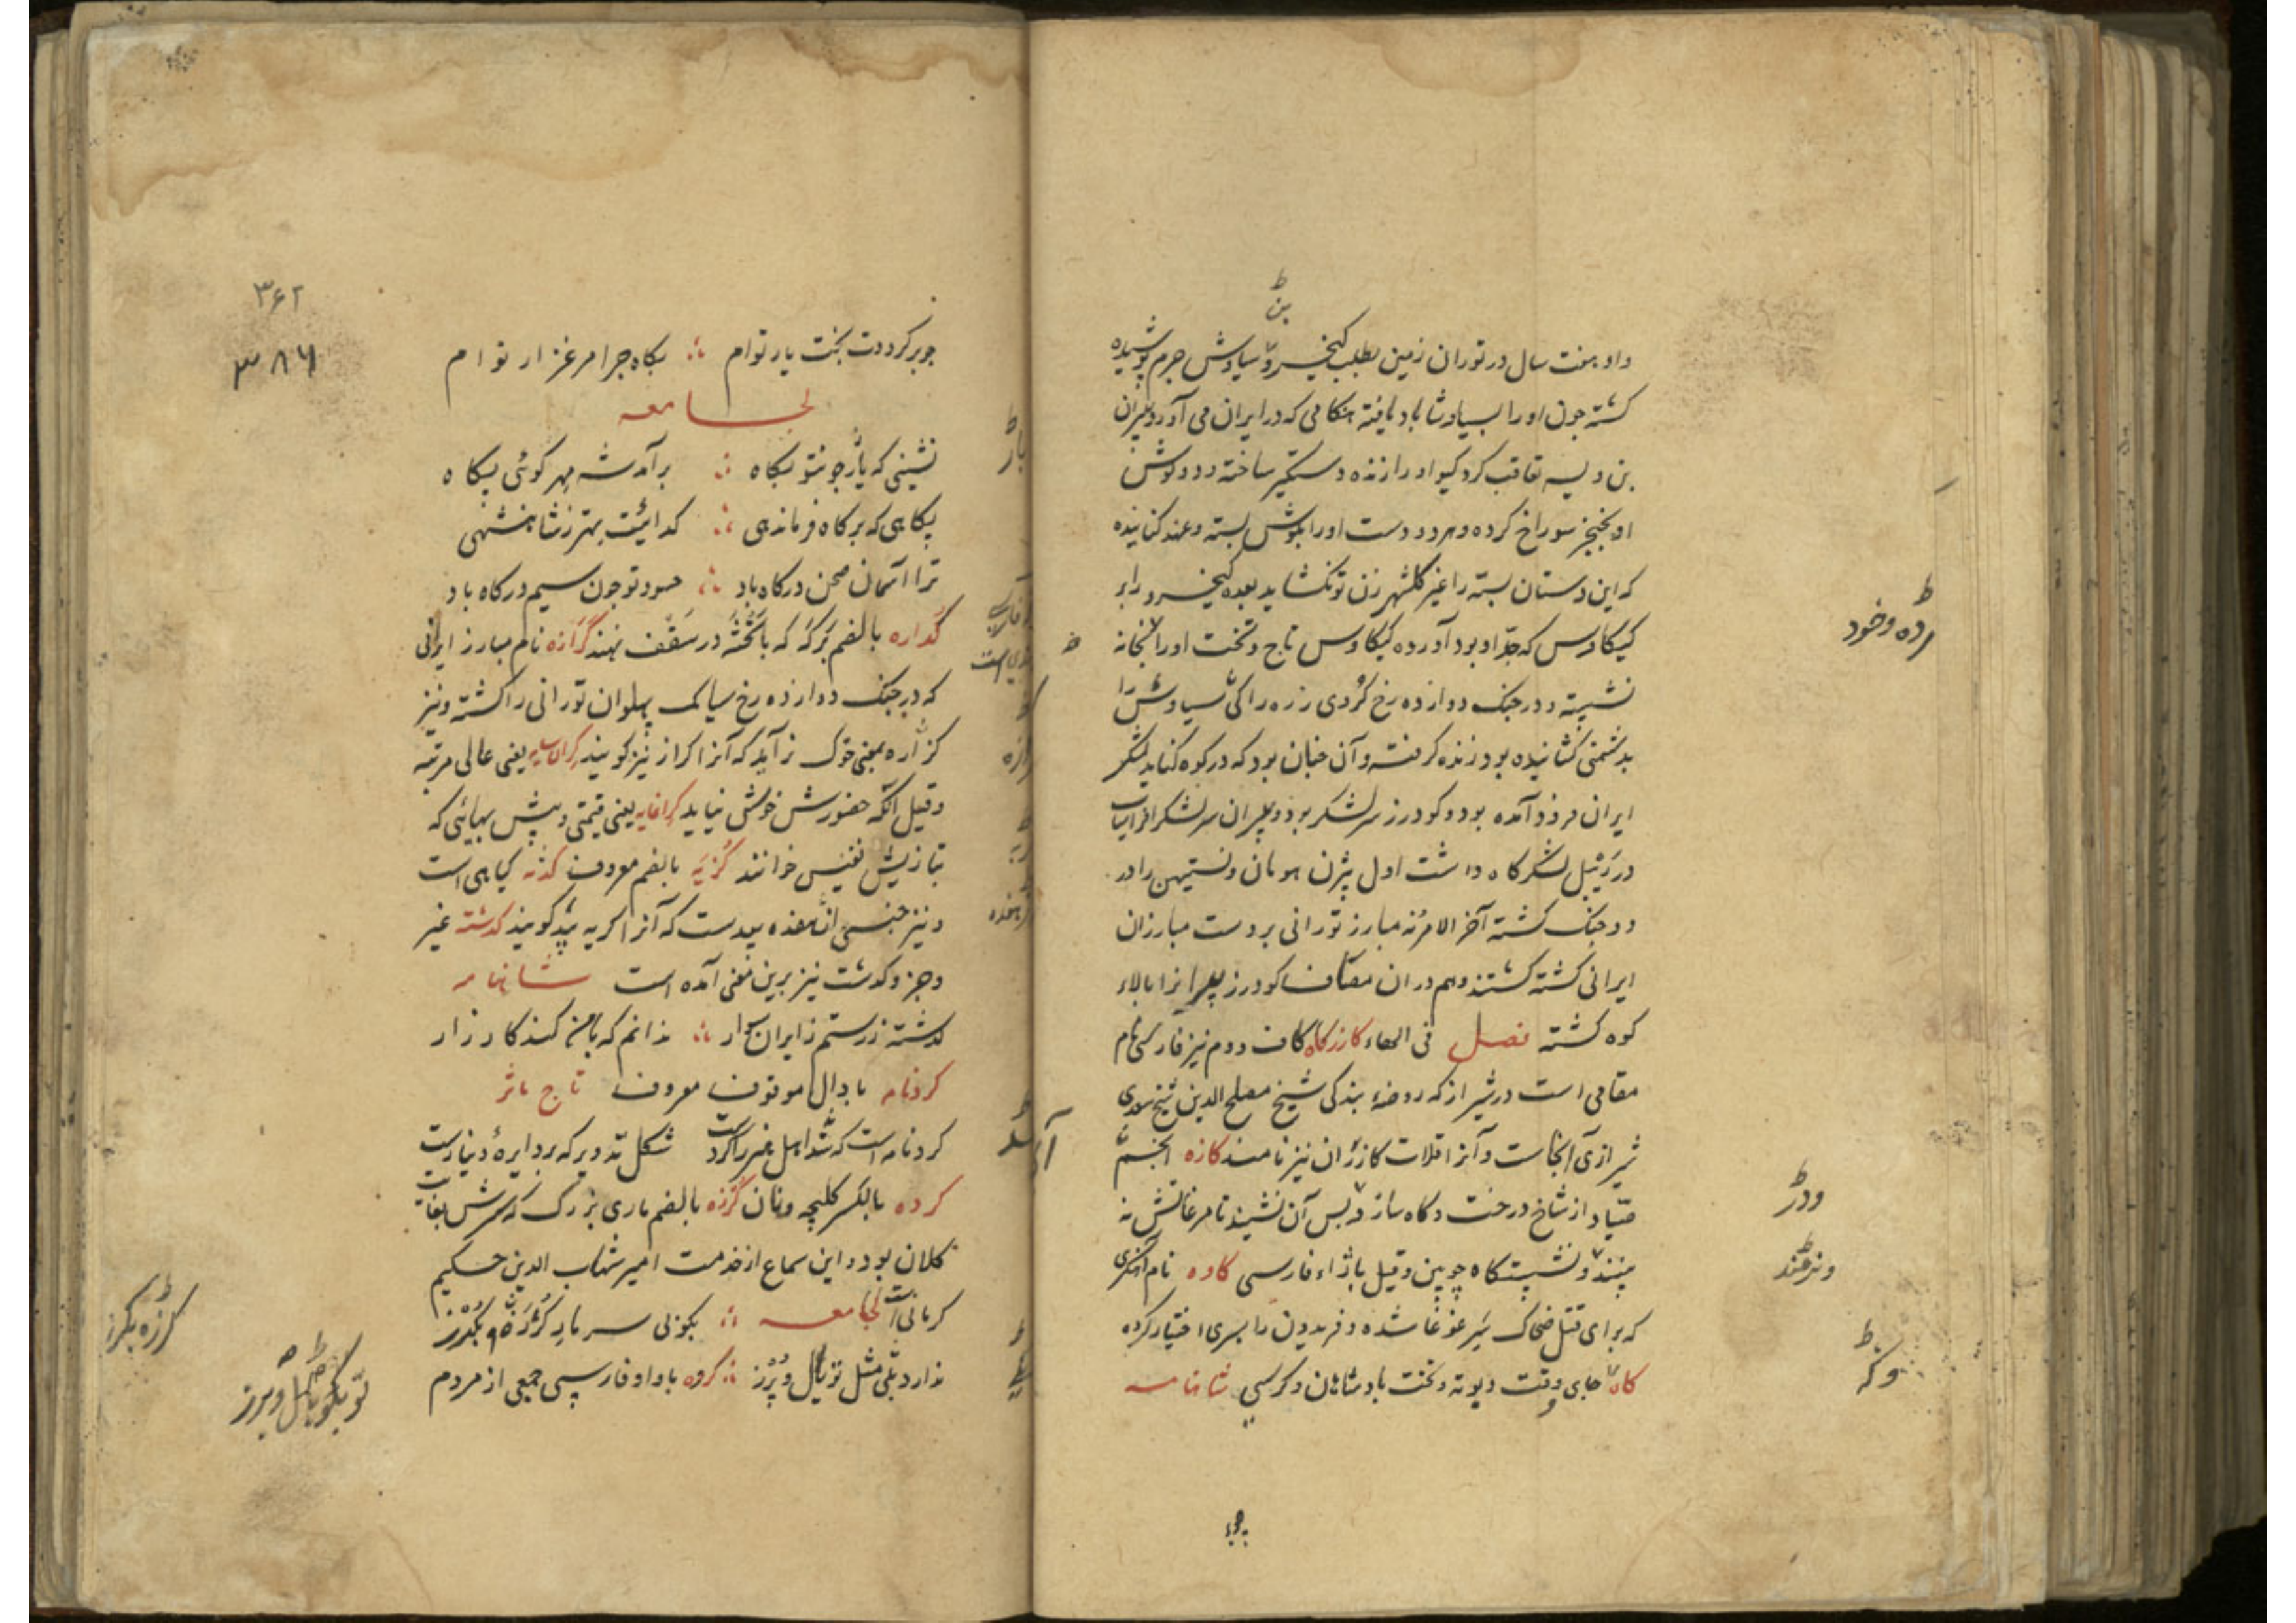 بن
داو هفت سال در توران زمین بطلب کیخسرو سیاوش جرم پوشیده
کشته چون او را بسیاوشاباد یافته هنکامی که در ایران می آورد پیران
بن ویسه تعاقب کرد کیو او را زنده دستکیر ساخته و دو کوش
او بخنجر سوراخ کرده و هر دو دست او را بموش بسته و عهد کنانیده
که این دستان بسته را غیر کلشهر زن تو نکشاید بعده کیخسرو را بر
کیکاوس که جد او بود آورده کیکاوس تاج و تخت او را
نشسته و در جنک دوازده رخ کردی زره را کی سیاوش را
بدشمنی کشانیده بود زنده کرفته و آن چنان بود که در کوه کنابد لشکر
ایران فرود آمده بود و کودرز سرلشکر بود و پیران سرلشکر افراسیاب
در ریبل لشکرکاه داشت اول بیژن هومان و نستیهن را در
دو جنک کشته آخر الامر نه مبارز تورانی بر دست مبارزان
ایرانی کشته کشتند و هم در ان مصاف کودرز پیرانرا بالاء
کوه کشته فصل فی الهاء کازرکاه کاف دوم نیز فارسی نام
مقامی است در شیراز که روضهٔ بندکی شیخ مصلح الدین شیخ سعدی
شیرازی آنجاست و آنرا قلات کازران نیز نامند کازه آنچه
صیاد از شاخ درخت و کاه سازد و پس آن نشیند تا مرغانش نه
بینند و نشستکاه چوبین و قیل با زاء فارسی کاوه نام آهنکری
که برای قتل ضحاک سر غوغا شده و فریدون را بسری اختیار کرده
کاه جای و وقت و بوته و تخت بادشاهان و کرسی شاهنامه
زده و خود
ودر
وکه
۳۶۲
۳۸۶
چو بر کرددت بخت یار توام ∴ بکاه چرا مرغزار توام
لجامعه
نشینی که یارچو نتو بکاه ∴ برآمد شه مهر کوئی بکاه
بکاهی که بر کاه فرماندهی ∴ کدائیت بهتر ز شاهنشهی
ترا آسمان صحن درکاه باد ∴ حسود تو چون سیم در کاه باد
کداره بالضم برکه که با تخته در سقف نهند کرازه نام مبارز ایرانی
که در جنک دوازده رخ سیامک پهلوان تورانی را کشته و نیز
کرازه بمعنی خوک نر آید که آنرا کراز نیز کویند کران سایه یعنی عالی مرتبه
و قیل آنکه حضورش خوش نیاید کرانمایه یعنی قیمتی و بیش بهائی که
بتازیش نفیس خوانند کزیه بالضم معروف کدنه کیاهی است
و نیز جنسی از هفده بیدست که آنرا کربه بید کویند کذشته غیر
و جز و کذشت نیز برین معنی آمده است شاهنامه
کذشته ز رستم ز ایران سوار ∴ ندانم که با من کند کارزار
کردنامه با دال موقوف معروف تاج مآثر
کردنامه است که شد اهل هنر را کرد است شکل تدویر که بر دایرهٔ دنیارست
کرده بالکسر کلیچه و نان کرزه بالضم ماری بزرک که سرش بغایت
کلان بود و این سماع از خدمت امیر شهاب الدین حکیم
کرمانی است لجامعه ∴ بکوبی سر مار کرزه بکرز
ندارد بلی مثل تو یال و برز ∴ کروه با واو فارسی جمعی از مردم
کرزه بکرز